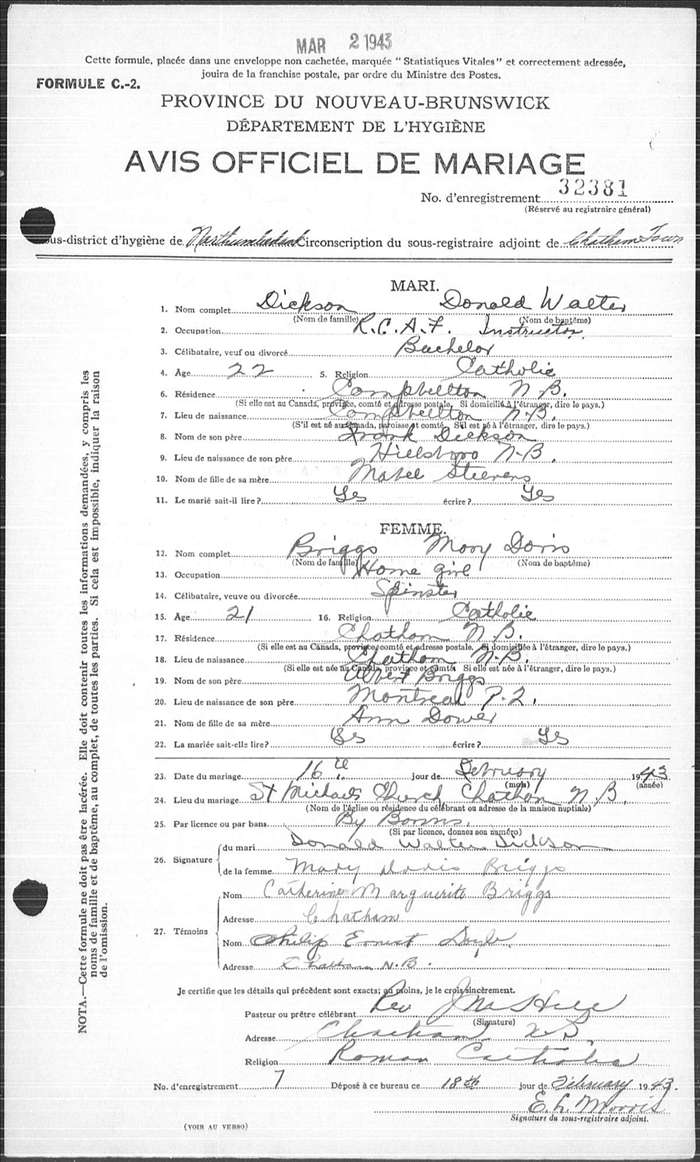 MAR 2 1943
Cette formule, placée dans une enveloppe non cachetée, marquée "Statistiques Vitales" et correctement adressée,
jouira de la franchise postale, par ordre du Ministre des Postes.
FORMULE C.-2.
PROVINCE DU NOUVEAU-BRUNSWICK
DÉPARTEMENT DE L'HYGIÈNE
AVIS OFFICIEL DE MARIAGE
No. d'enregistrement 32381
(Réservé au registraire général)
ous-district d'hygiène de Northumberland Circonscription du sous-registraire adjoint de Chatham Town
MARI.
1. Nom complet Dickson Donald Walter
(Nom de famille) (Nom de baptême)
2. Occupation R.C.A.F. Instructor
3. Célibataire, veuf ou divorcé Bachelor
4. Age 22 5. Religion Catholic
6. Résidence Campbellton N.B.
(Si elle est au Canada, province, comté et adresse postale. Si domicilié à l'étranger, dire le pays.)
7. Lieu de naissance Campbellton N.B.
(S'il est né au Canada, paroisse et comté. Si est né à l'étranger, dire le pays.)
8. Nom de son père Frank Dickson
9. Lieu de naissance de son père Hillsboro N.B.
10. Nom de fille de sa mère Mabel Steeves
11. Le marié sait-il lire? Yes écrire? Yes
FEMME.
12. Nom complet Briggs Mary Doris
(Nom de famille) (Nom de baptême)
13. Occupation Home girl
14. Célibataire, veuve ou divorcée Spinster
15. Age 21 16. Religion Catholic
17. Résidence Chatham N.B.
(Si elle est au Canada, province, comté et adresse postale. Si domiciliée à l'étranger, dire le pays.)
18. Lieu de naissance Chatham N.B.
(Si elle est née au Canada, province et comté Si elle est née à l'étranger, dire le pays.)
19. Nom de son père Albert Briggs
20. Lieu de naissance de son père Montreal P.Q.
21. Nom de fille de sa mère Ann Dower
22. La mariée sait-elle lire? Yes écrire? Yes
23. Date du mariage 16th jour de February 1943
(mois) (année)
24. Lieu du mariage St Michaels Church Chatham N.B.
(Nom de l'église ou résidence du célébrant ou adresse de la maison nuptiale)
25. Par licence ou par bans By Banns.
(Si par licence, donnez son numéro)
26. Signature du mari Donald Walter Dickson
de la femme Mary Doris Briggs
27. Témoins Nom Catherine Marguerite Briggs
Adresse Chatham
Nom Philip Ernest Doyle
Adresse Chatham N.B.
Je certifie que les détails qui précèdent sont exacts; au moins, je le crois sincèrement.
Pasteur ou prêtre célébrant Rev
(Signature)
Adresse Chatham N.B.
Religion Roman Catholic
No. d'enregistrement 7 Déposé à ce bureau ce 18th jour de February 1943.
E. L. Morris
Signature du sous-registraire adjoint.
(VOIR AU VERSO)
NOTA.—Cette formule ne doit pas être lacérée. Elle doit contenir toutes les informations demandées, y compris les
noms de famille et de baptême, au complet, de toutes les parties. Si cela est impossible, indiquer la raison
de l'omission.